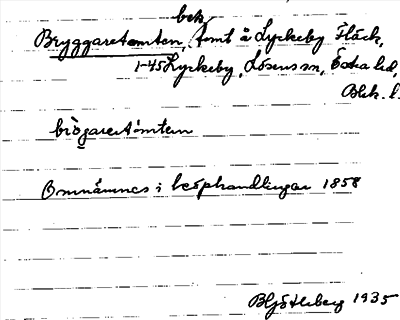 bek.
Bryggaretomten, tomt å Lyckeby Fläck,
1-45 Lyckeby, Lösens sn, Östra hd,
Blek. l.
bìogaretómten
Omnämnes i köphandlingar 1858
B Hjötleberg 1935